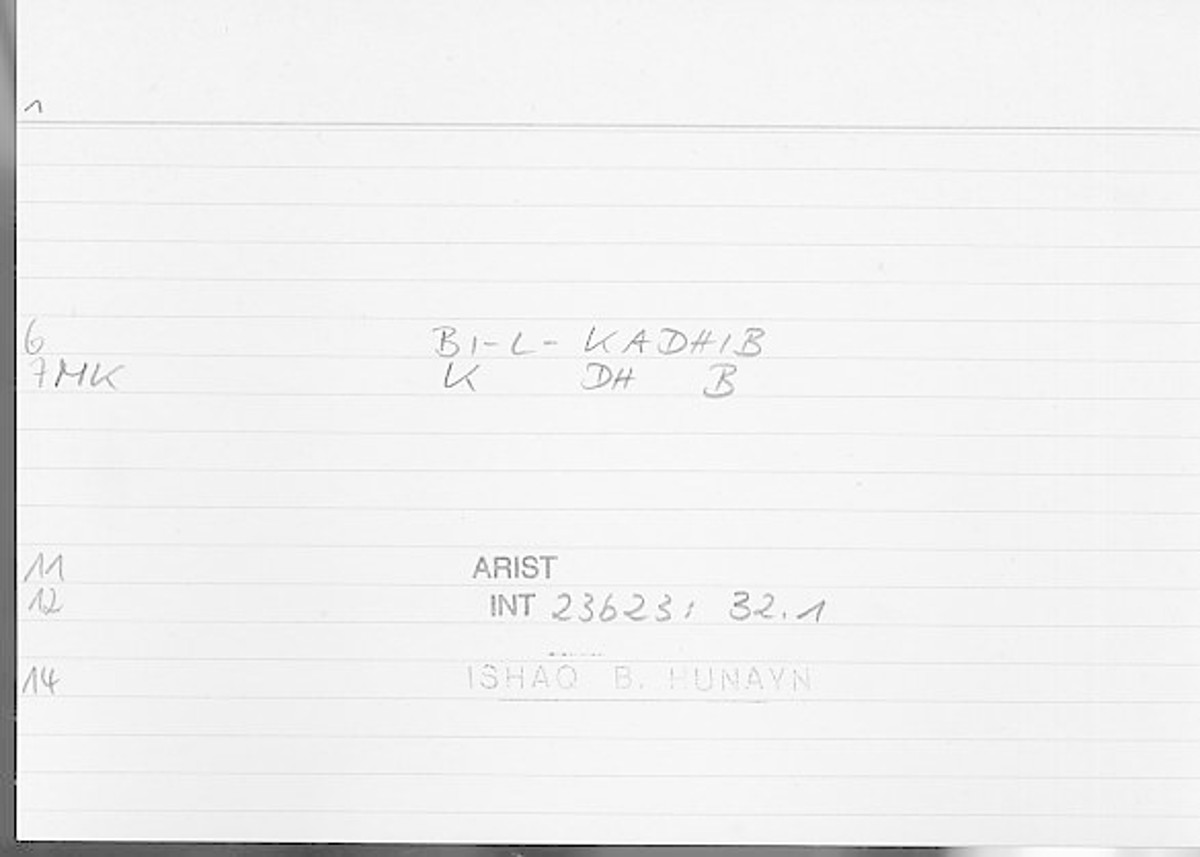 1
6 BI-L-KADHIB
7MK K DH B
11 ARIST
12 INT 23b23; 32.1
14 ISHAQ B. HUNAYN